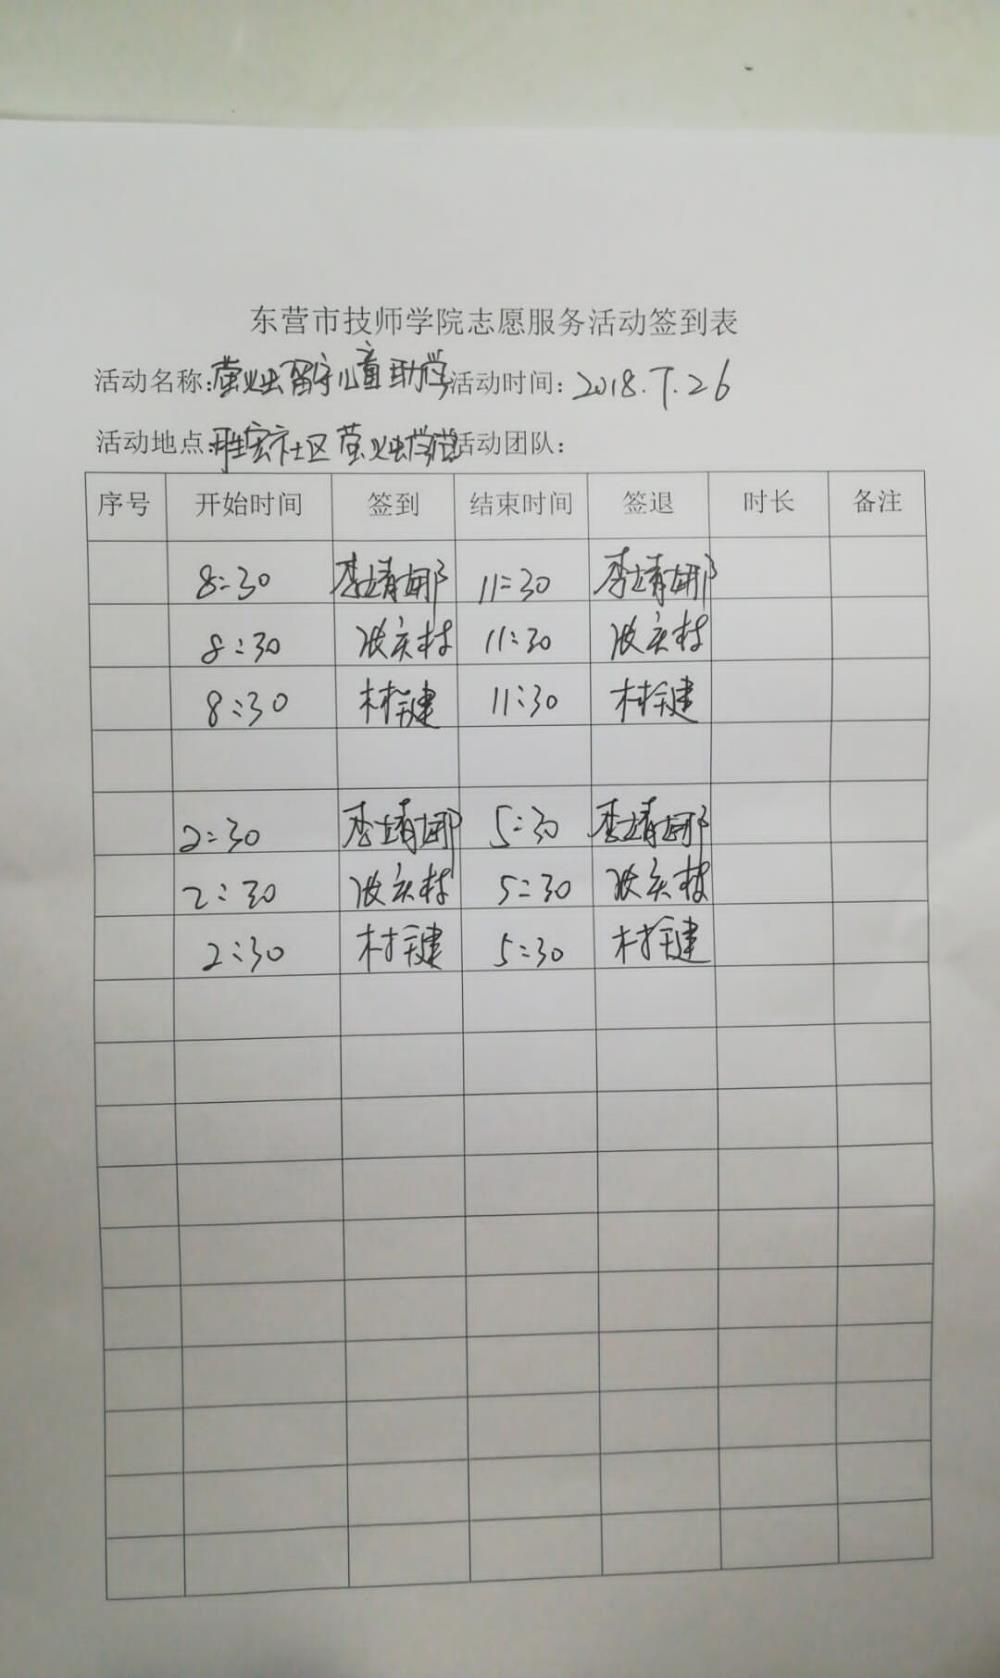 东营市技师学院志愿服务活动签到表
活动名称:萤火虫留守儿童助学 活动时间:2018.7.26
活动地点:社区萤火虫学堂 活动团队:
序号 开始时间 签到 结束时间 签退 时长 备注
8:30 李靖娜 11:30 李靖娜
8:30 11:30
8:30 11:30
2:30 李靖娜 5:30 李靖娜
2:30 5:30
2:30 5:30